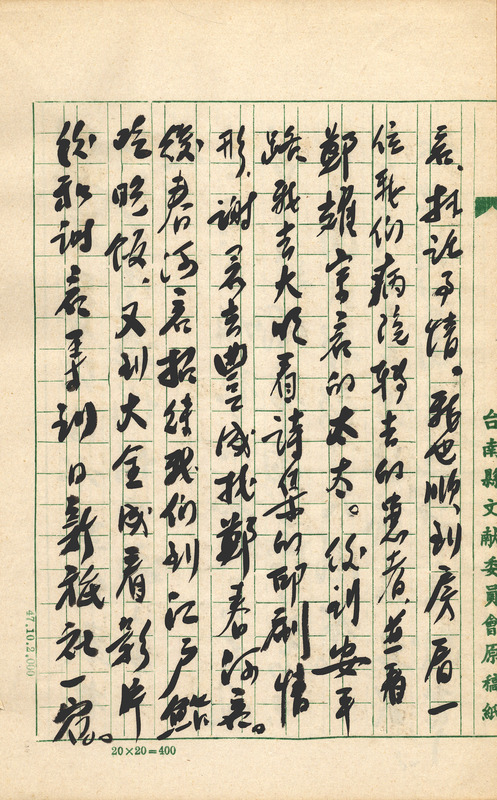 君、事情。我也順到房看一
位我们病院轉去的患者、並看
鄭雄宗君的太太。後到安平
路我去大明看詩集的印刷情
形、謝君去豐成找鄭春河氏。
後春河君招待我们到江戶鮨
吃晚飯、又到大全成看影片
後和謝君再到日新旅社一宿。
台南縣文献委員會原稿紙
47.10.2,000
20×20=400